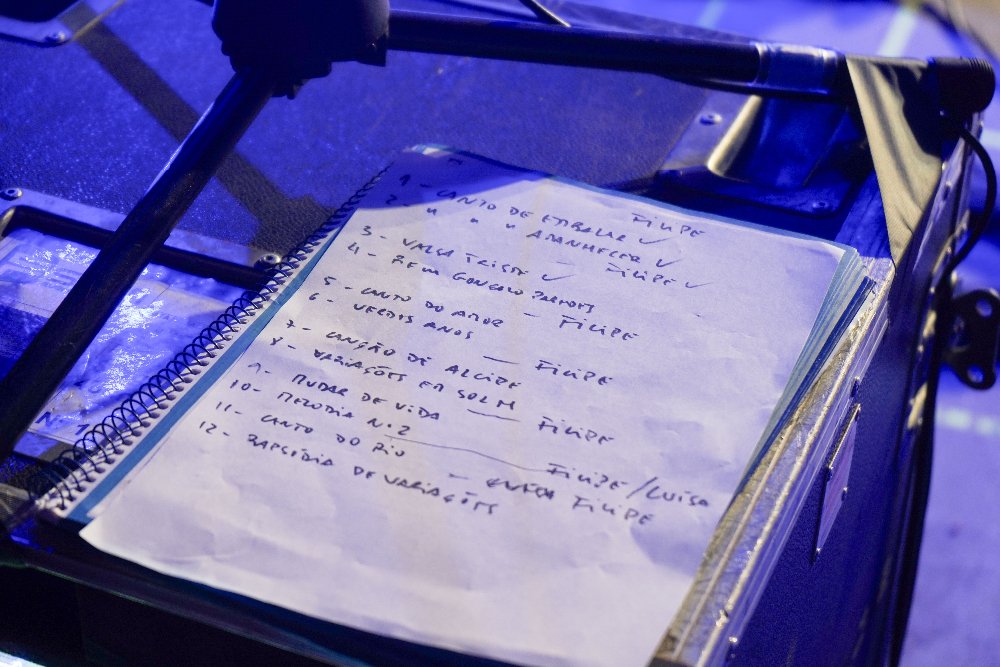 1 - CANTO DE EMBALAR ✓ FILIPE
2 - " " " AMANHECER ✓
3 - VALSA TRISTE ✓ - FILIPE ✓
4 - BEM GONÇALO PAREDES
5 - CANTO DO AMOR - FILIPE
6 - VERDES ANOS
7 - CANÇÃO DE ALCIPE — FILIPE
8 - VARIAÇÕES EM SOL M
9 - MUDAR DE VIDA — FILIPE
10 - MELODIA N.2
11 - CANTO DO RIO — FILIPE/LUÍSA
12 - RAPSÓDIA DE VARIAÇÕES - FILIPE
N.1